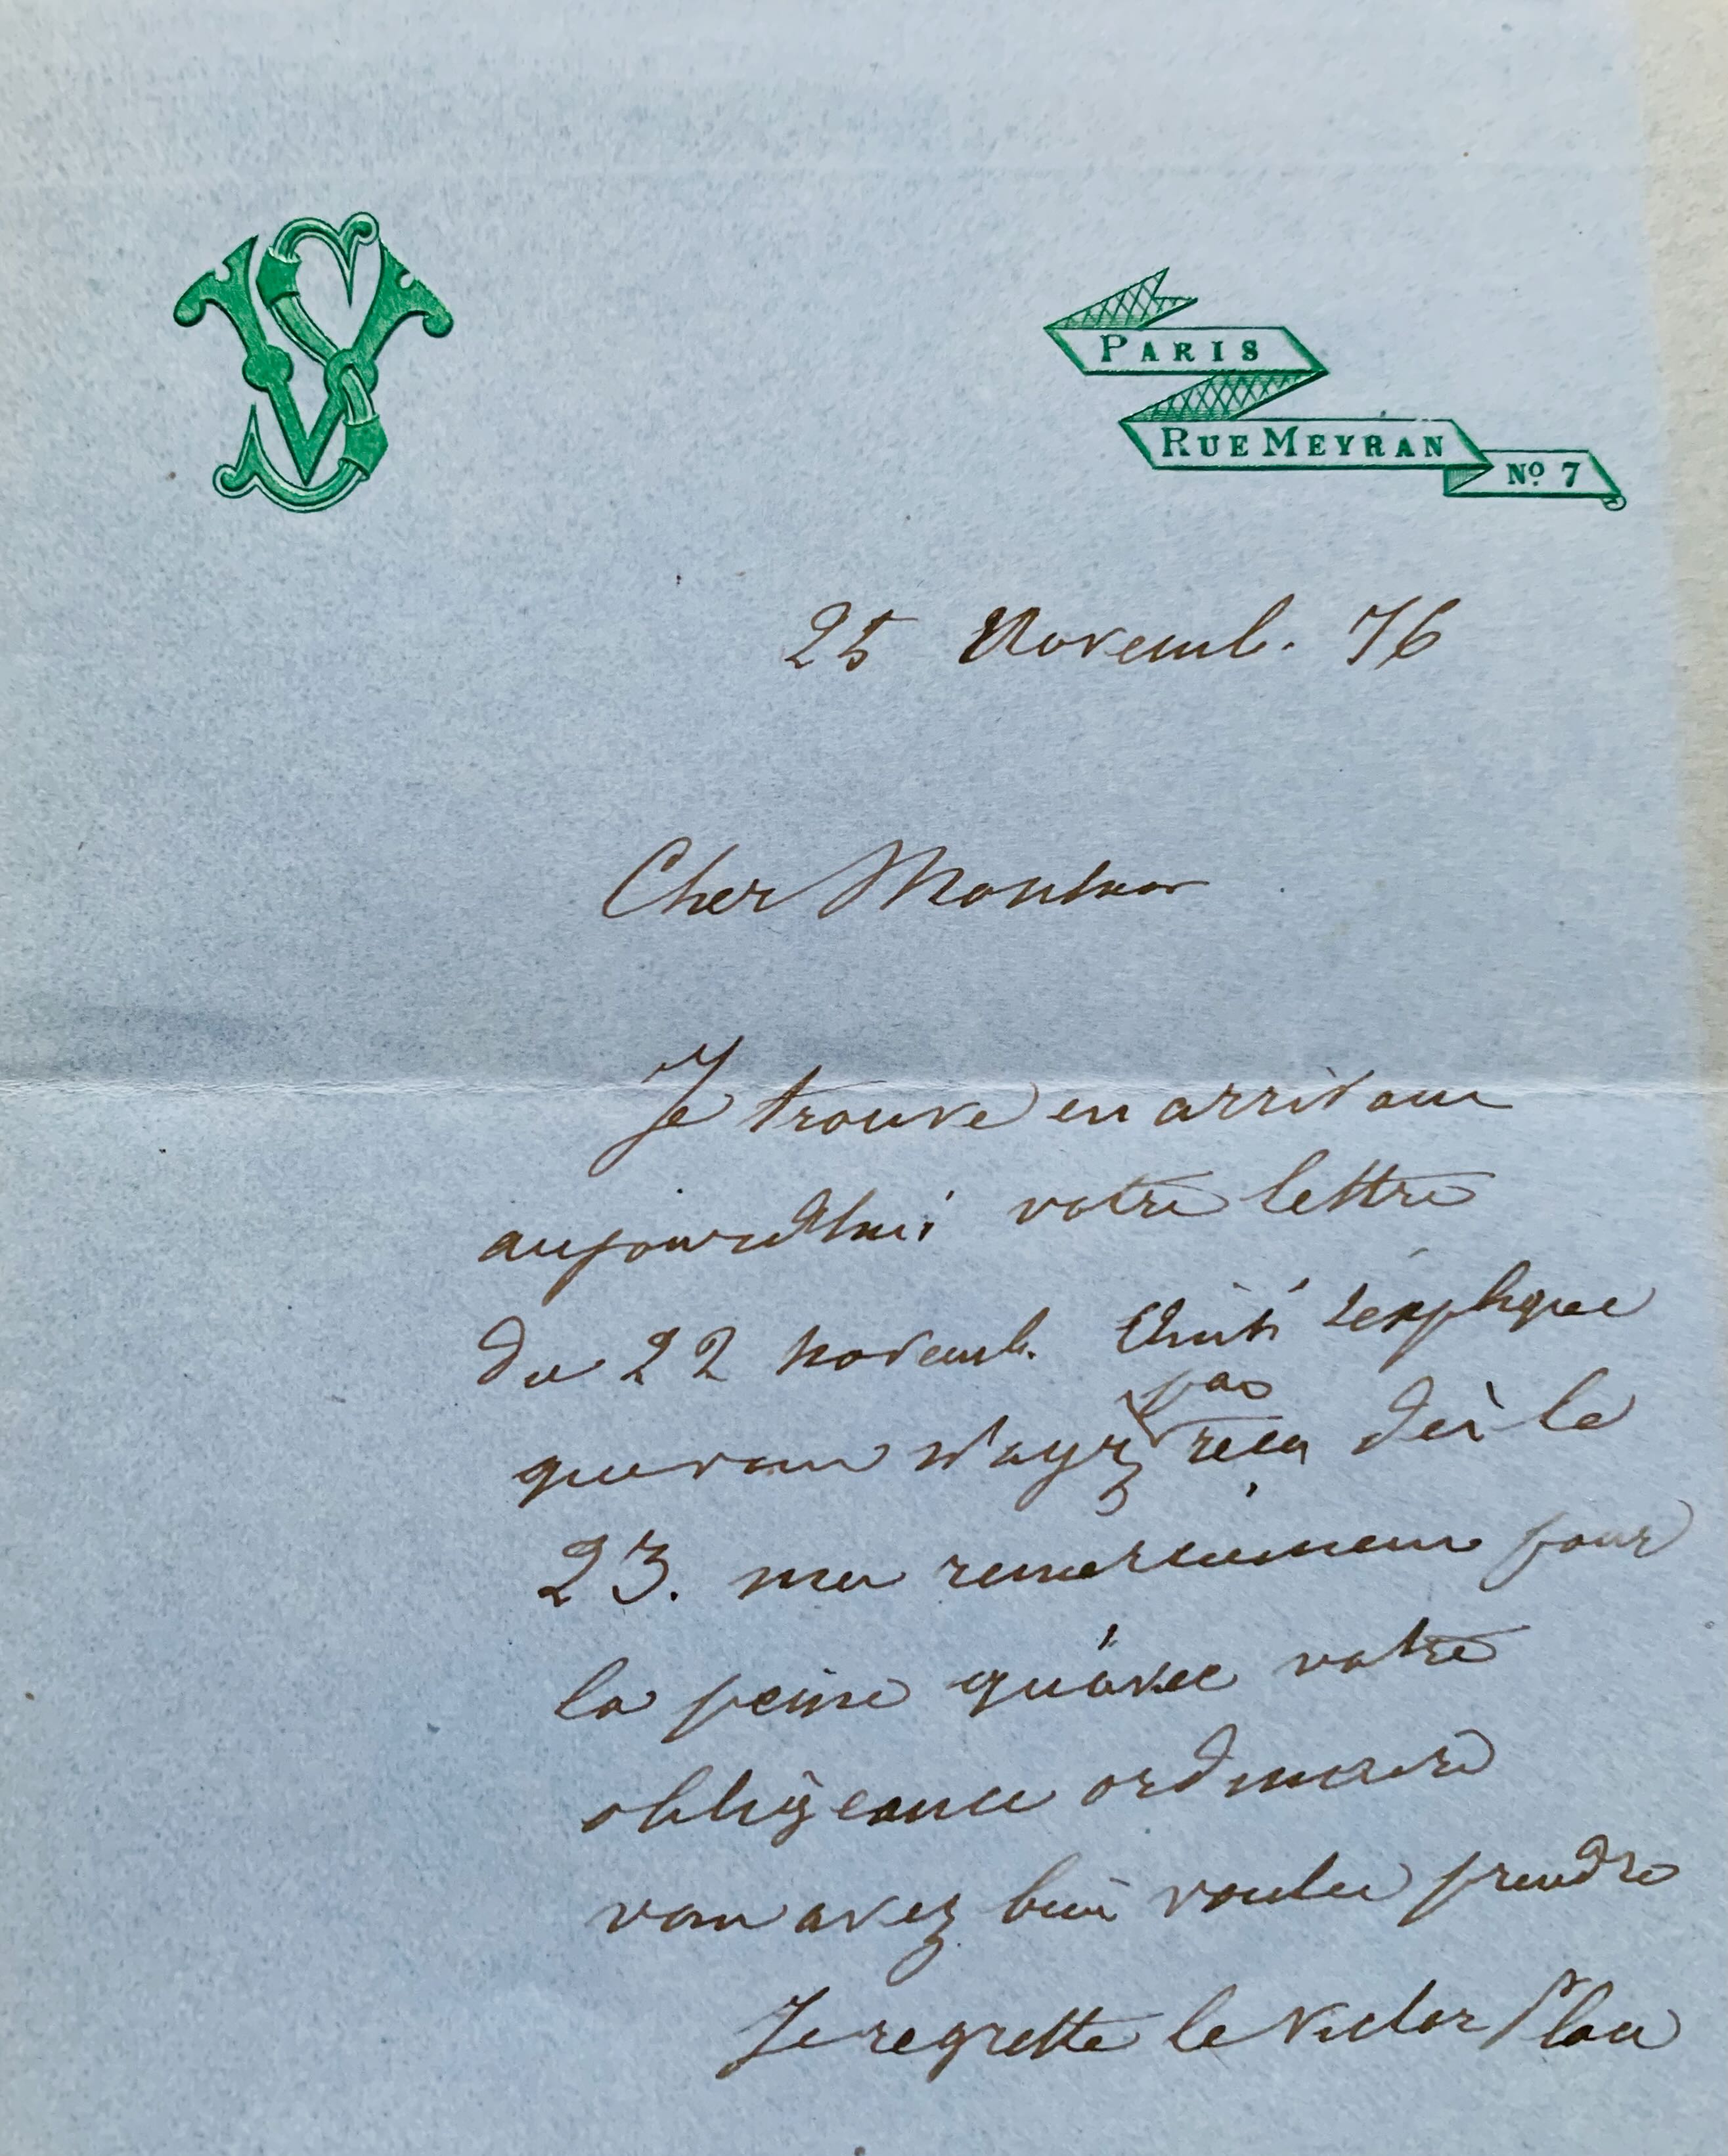 VS
PARIS
RUE MEYRAN
No. 7
25 Novemb. 76
Cher Monsieur
Je trouve en arrivant
aujourd'hui votre lettre
du 22 novemb. Ainsi s'explique
que vous n'ayez pas reçu dès le
23. mes remerciemens pour
la peine qu'avec votre
obligeance ordinaire
vous avez bien voulu prendre
Je regrette le Victor